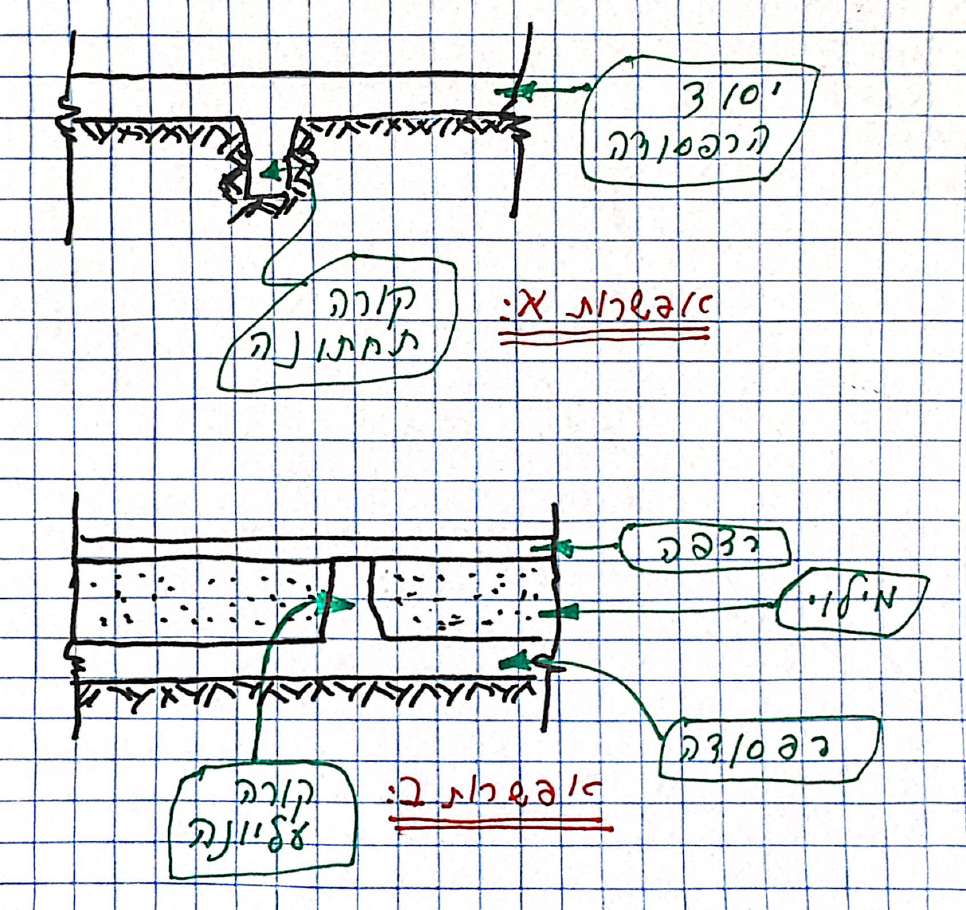 יסוד
הרפסודה
קורה
תחתונה
אפשרות א:
רצפה
מילוי
רפסודה
קורה
עליונה
אפשרות ב: